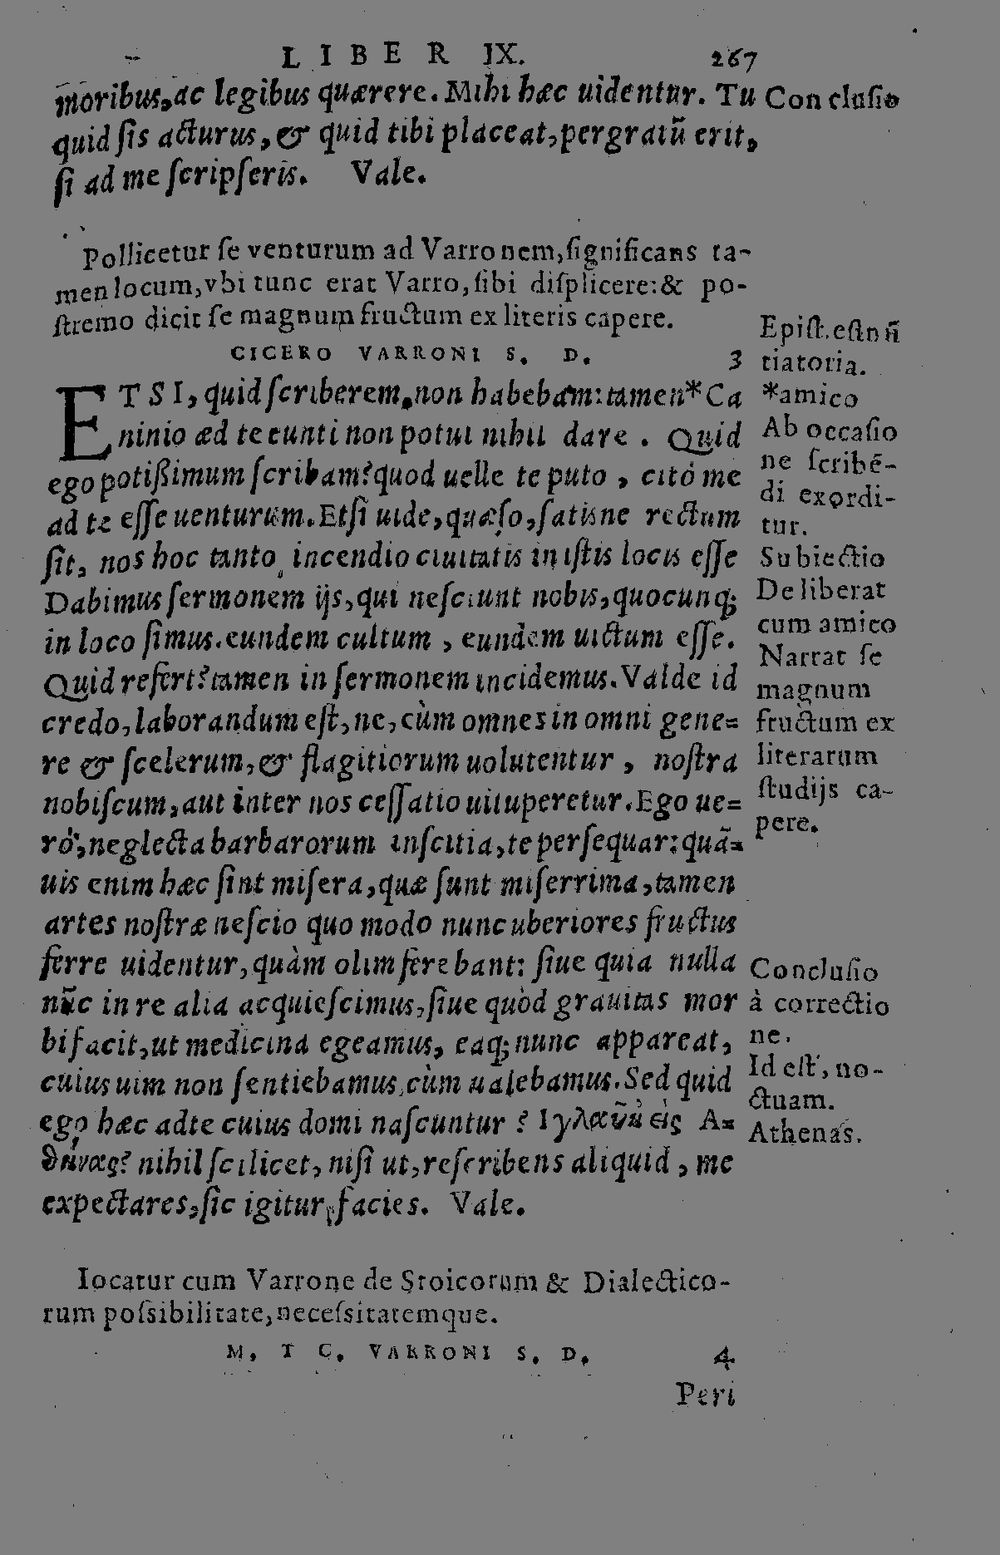 LIBER IX. 267
moribus, ac legibus quærere. Mihi hæc uidentur. Tu
quid ſis acturus, & quid tibi placeat, pergratũ erit,
ſi ad me ſcripſeris. Vale.
Concluſio
Pollicetur ſe venturum ad Varronem, ſignificans ta-
men locum, vbi tunc erat Varro, ſibi diſplicere: & po-
ſtremo dicit ſe magnum fructum ex literis capere.
CICERO VARRONI S. D. 3
ETSI, quid ſcriberem, non habebam: tamen *Ca
ninio ad te eunti non potui nihil dare. Quid
ego potißimum ſcribam? quod uelle te puto, citò me
ad te eſſe uenturum. Etſi uide, quæſo, ſatisne rectum
ſit, nos hoc tanto incendio ciuitatis in iſtis locis eſſe
Dabimus ſermonem ijs, qui neſciunt nobis, quocunq;
in loco ſimus. eundem cultum, eundem uictum eſſe.
Quid refert? tamen in ſermonem incidemus. Valde id
credo, laborandum eſt, ne, cùm omnes in omni gene=
re & ſcelerum, & flagitiorum uolutentur, noſtra
nobiſcum, aut inter nos ceſſatio uituperetur. Ego ue=
rò, neglecta barbarorum inſcitia, te perſequar: quã=
uis enim hæc ſint miſera, quæ ſunt miſerrima, tamen
artes noſtræ neſcio quo modo nunc uberiores fructus
ferre uidentur, quàm olim ferebant: ſiue quia nulla
nũc in re alia acquieſcimus, ſiue quòd grauitas mor
bi facit, ut medicina egeamus, eaq; nunc appareat,
cuius uim non ſentiebamus, cùm ualebamus. Sed quid
ego hæc ad te cuius domi naſcuntur? γλαῦκ' εἰς Α=
θήνας? nihil ſcilicet, niſi ut, reſcribens aliquid, me
expectares, ſic igitur facies. Vale.
Epiſt. eſt nũ
tiatoria.
*amico
Ab occaſio
ne ſcribē-
di exordi-
tur.
Subiectio
Deliberat
cum amico
Narrat ſe
magnum
fructum ex
literarum
ſtudijs ca-
pere.
Concluſio
à correctio
ne.
Id eſt, no-
ctuam.
Athenas.
Iocatur cum Varrone de Stoicorum & Dialectico-
rum poſsibilitate, neceſsitatemque.
M. T C. VARRONI S. D. 4
Peri